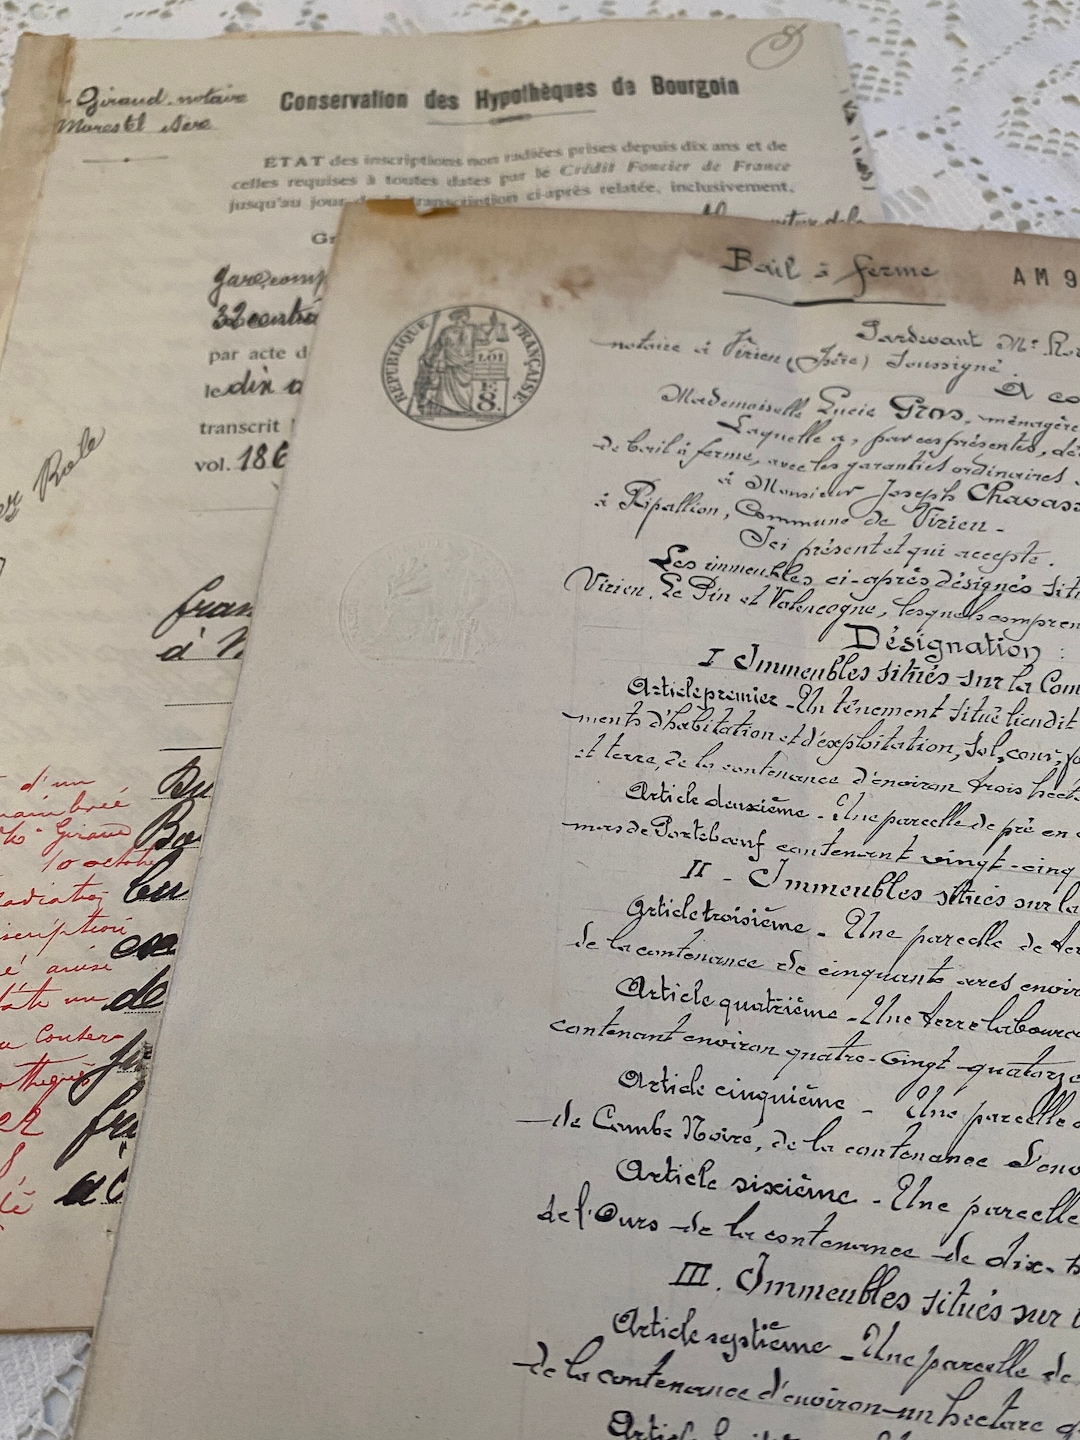 Giraud, notaire
Morestel Isère
Conservation des Hypothèques de Bourgoin
ETAT des inscriptions non radiées prises depuis dix ans et de
celles requises à toutes dates par le Crédit Foncier de France
jusqu'au jour de la transcription ci-après relatée, inclusivement,
Gr
gare, comp
32 centia
par acte d
le dix
transcrit
vol. 186
Role
fran
à
Bu
Bo
d'un
Giraud
10 octob
de
22
fra
Bail à ferme
AM 9
RÉPUBLIQUE FRANÇAISE
LOI
Pardevant Me
notaire à Virieu (Isère) soussigné.
A co
Mademoiselle Lucie Gros, ménagère
Laquelle a, par ces présentes, dé
de bail à ferme, avec les garanties ordinaires
à Monsieur Joseph Chavass
à Ripallion, Commune de Virieu -
Ici présent et qui accepte.
Les immeubles ci-après désignés situ
Virieu, Le Pin et Valencogne, lesquels compren
Désignation :
I Immeubles situés sur la Com
Article premier - Un ténement situé lieudit
ments d'habitation et d'exploitation, sol, cour,
et terre, de la contenance d'environ trois hect
Article deuxième - Une parcelle de pré en
mas de Porteboeuf contenant vingt-cinq
II - Immeubles situés sur la
Article troisième - Une parcelle de ter
de la contenance de cinquante ares envir
Article quatrième - Une terre laboura
contenant environ quatre-vingt-quatorze
Article cinquième - Une parcelle
de Combe Noire, de la contenance d'env
Article sixième - Une parcelle
de l'Ours de la contenance de dix-h
III. Immeubles situés sur
Article septième - Une parcelle de
de la contenance d'environ un hectare